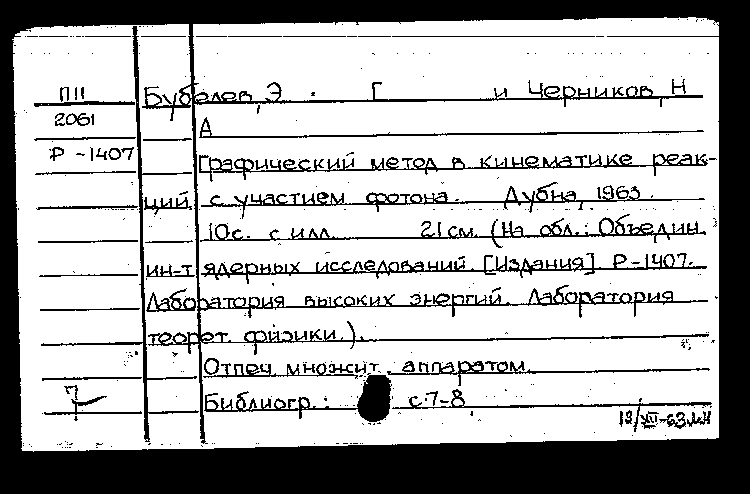 П11 Бубелев, Э. Г и Черников, Н
2061 А
Р-1407 Графический метод в кинематике реак-
ций с участием фотона. Дубна, 1963.
10с. с илл. 21см. (На обл.: Объедин.
ин-т ядерных исследований. [Издания]. Р-1407.
Лаборатория высоких энергий. Лаборатория
теорет. физики.).
Отпеч. множит. аппаратом.
Библиогр.: с.7-8